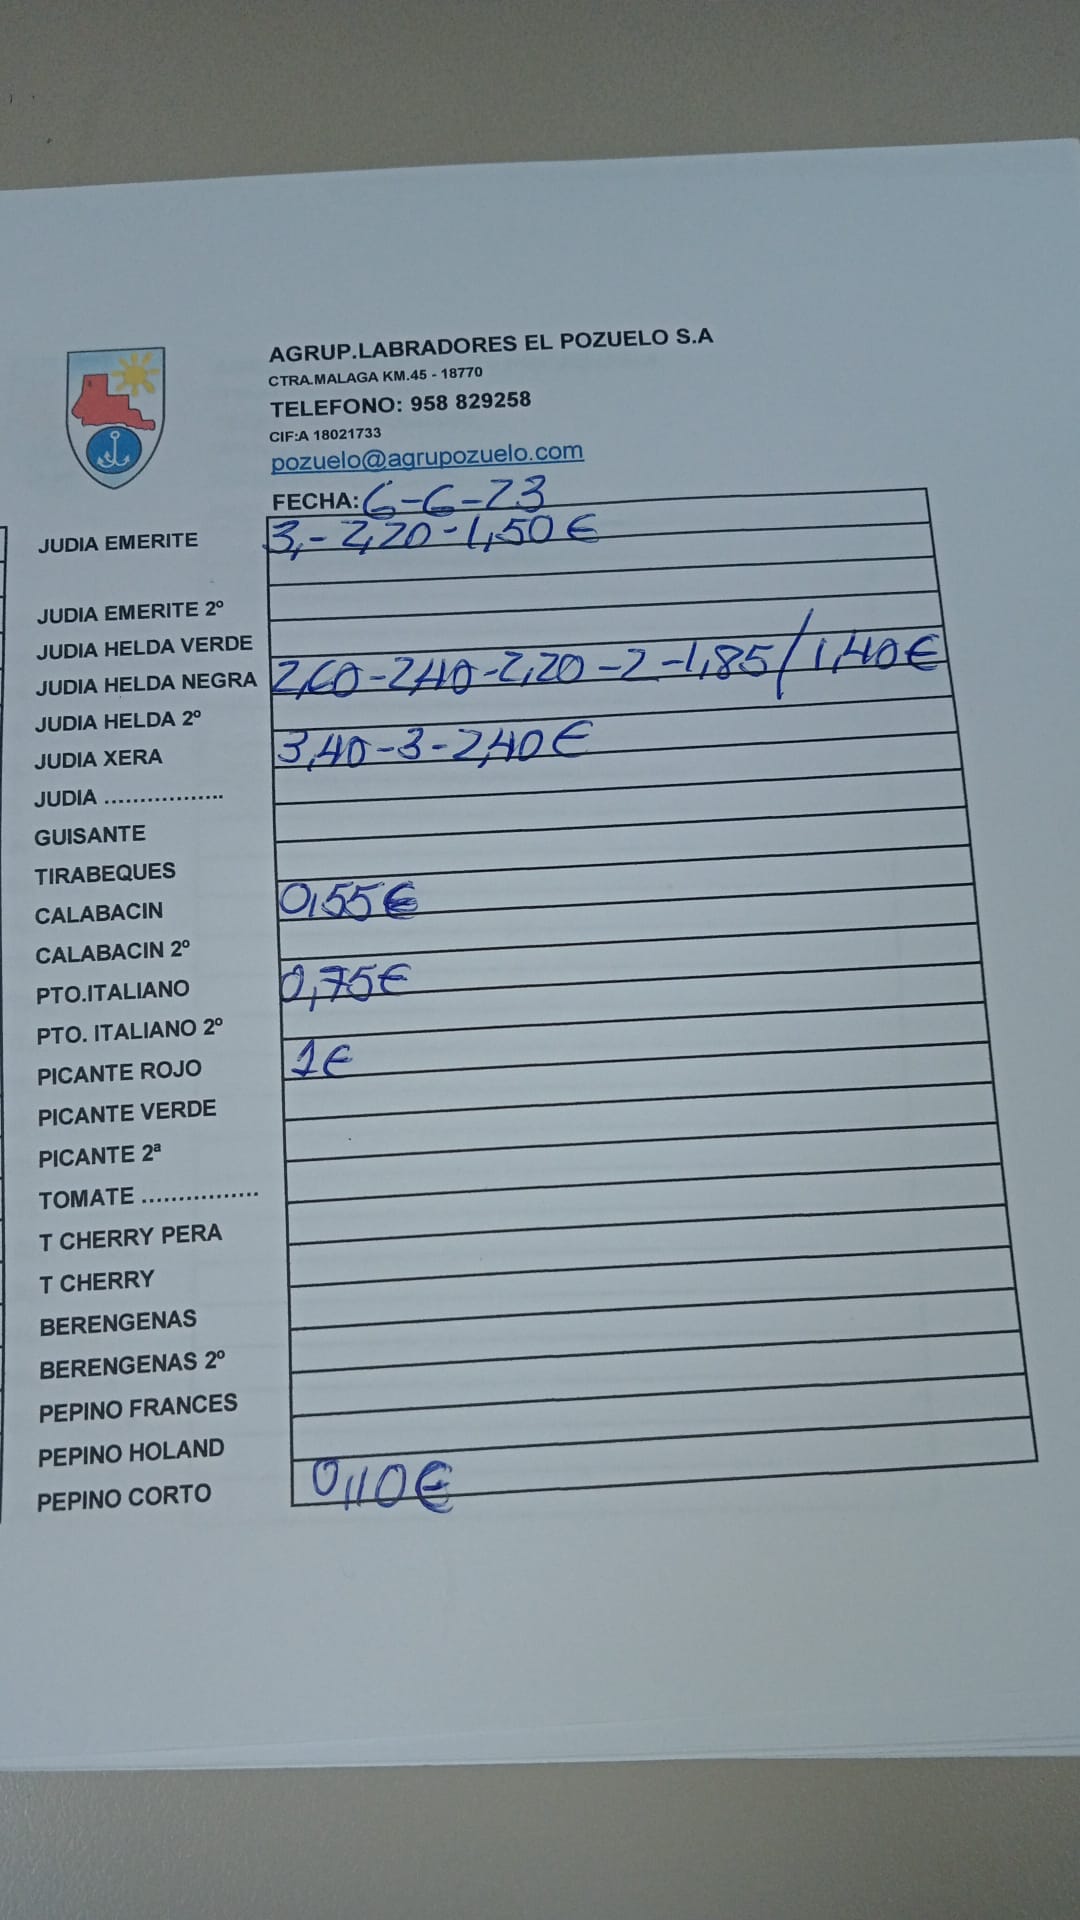 AGRUP.LABRADORES EL POZUELO S.A
CTRA.MALAGA KM.45 - 18770
TELEFONO: 958 829258
CIF:A 18021733
pozuelo@agrupozuelo.com
FECHA: 6-6-23
JUDIA EMERITE 3,- 2,20 - 1,50 €
JUDIA EMERITE 2º
JUDIA HELDA VERDE
JUDIA HELDA NEGRA 2,60 - 2,40 - 2,20 - 2 - 1,85 / 1,40 €
JUDIA HELDA 2º
JUDIA XERA 3,40 - 3 - 2,40 €
JUDIA .................
GUISANTE
TIRABEQUES
CALABACIN 0,55 €
CALABACIN 2º
PTO.ITALIANO 0,75 €
PTO. ITALIANO 2º
PICANTE ROJO 1 €
PICANTE VERDE
PICANTE 2ª
TOMATE ................
T CHERRY PERA
T CHERRY
BERENGENAS
BERENGENAS 2º
PEPINO FRANCES
PEPINO HOLAND
PEPINO CORTO 0,10 €